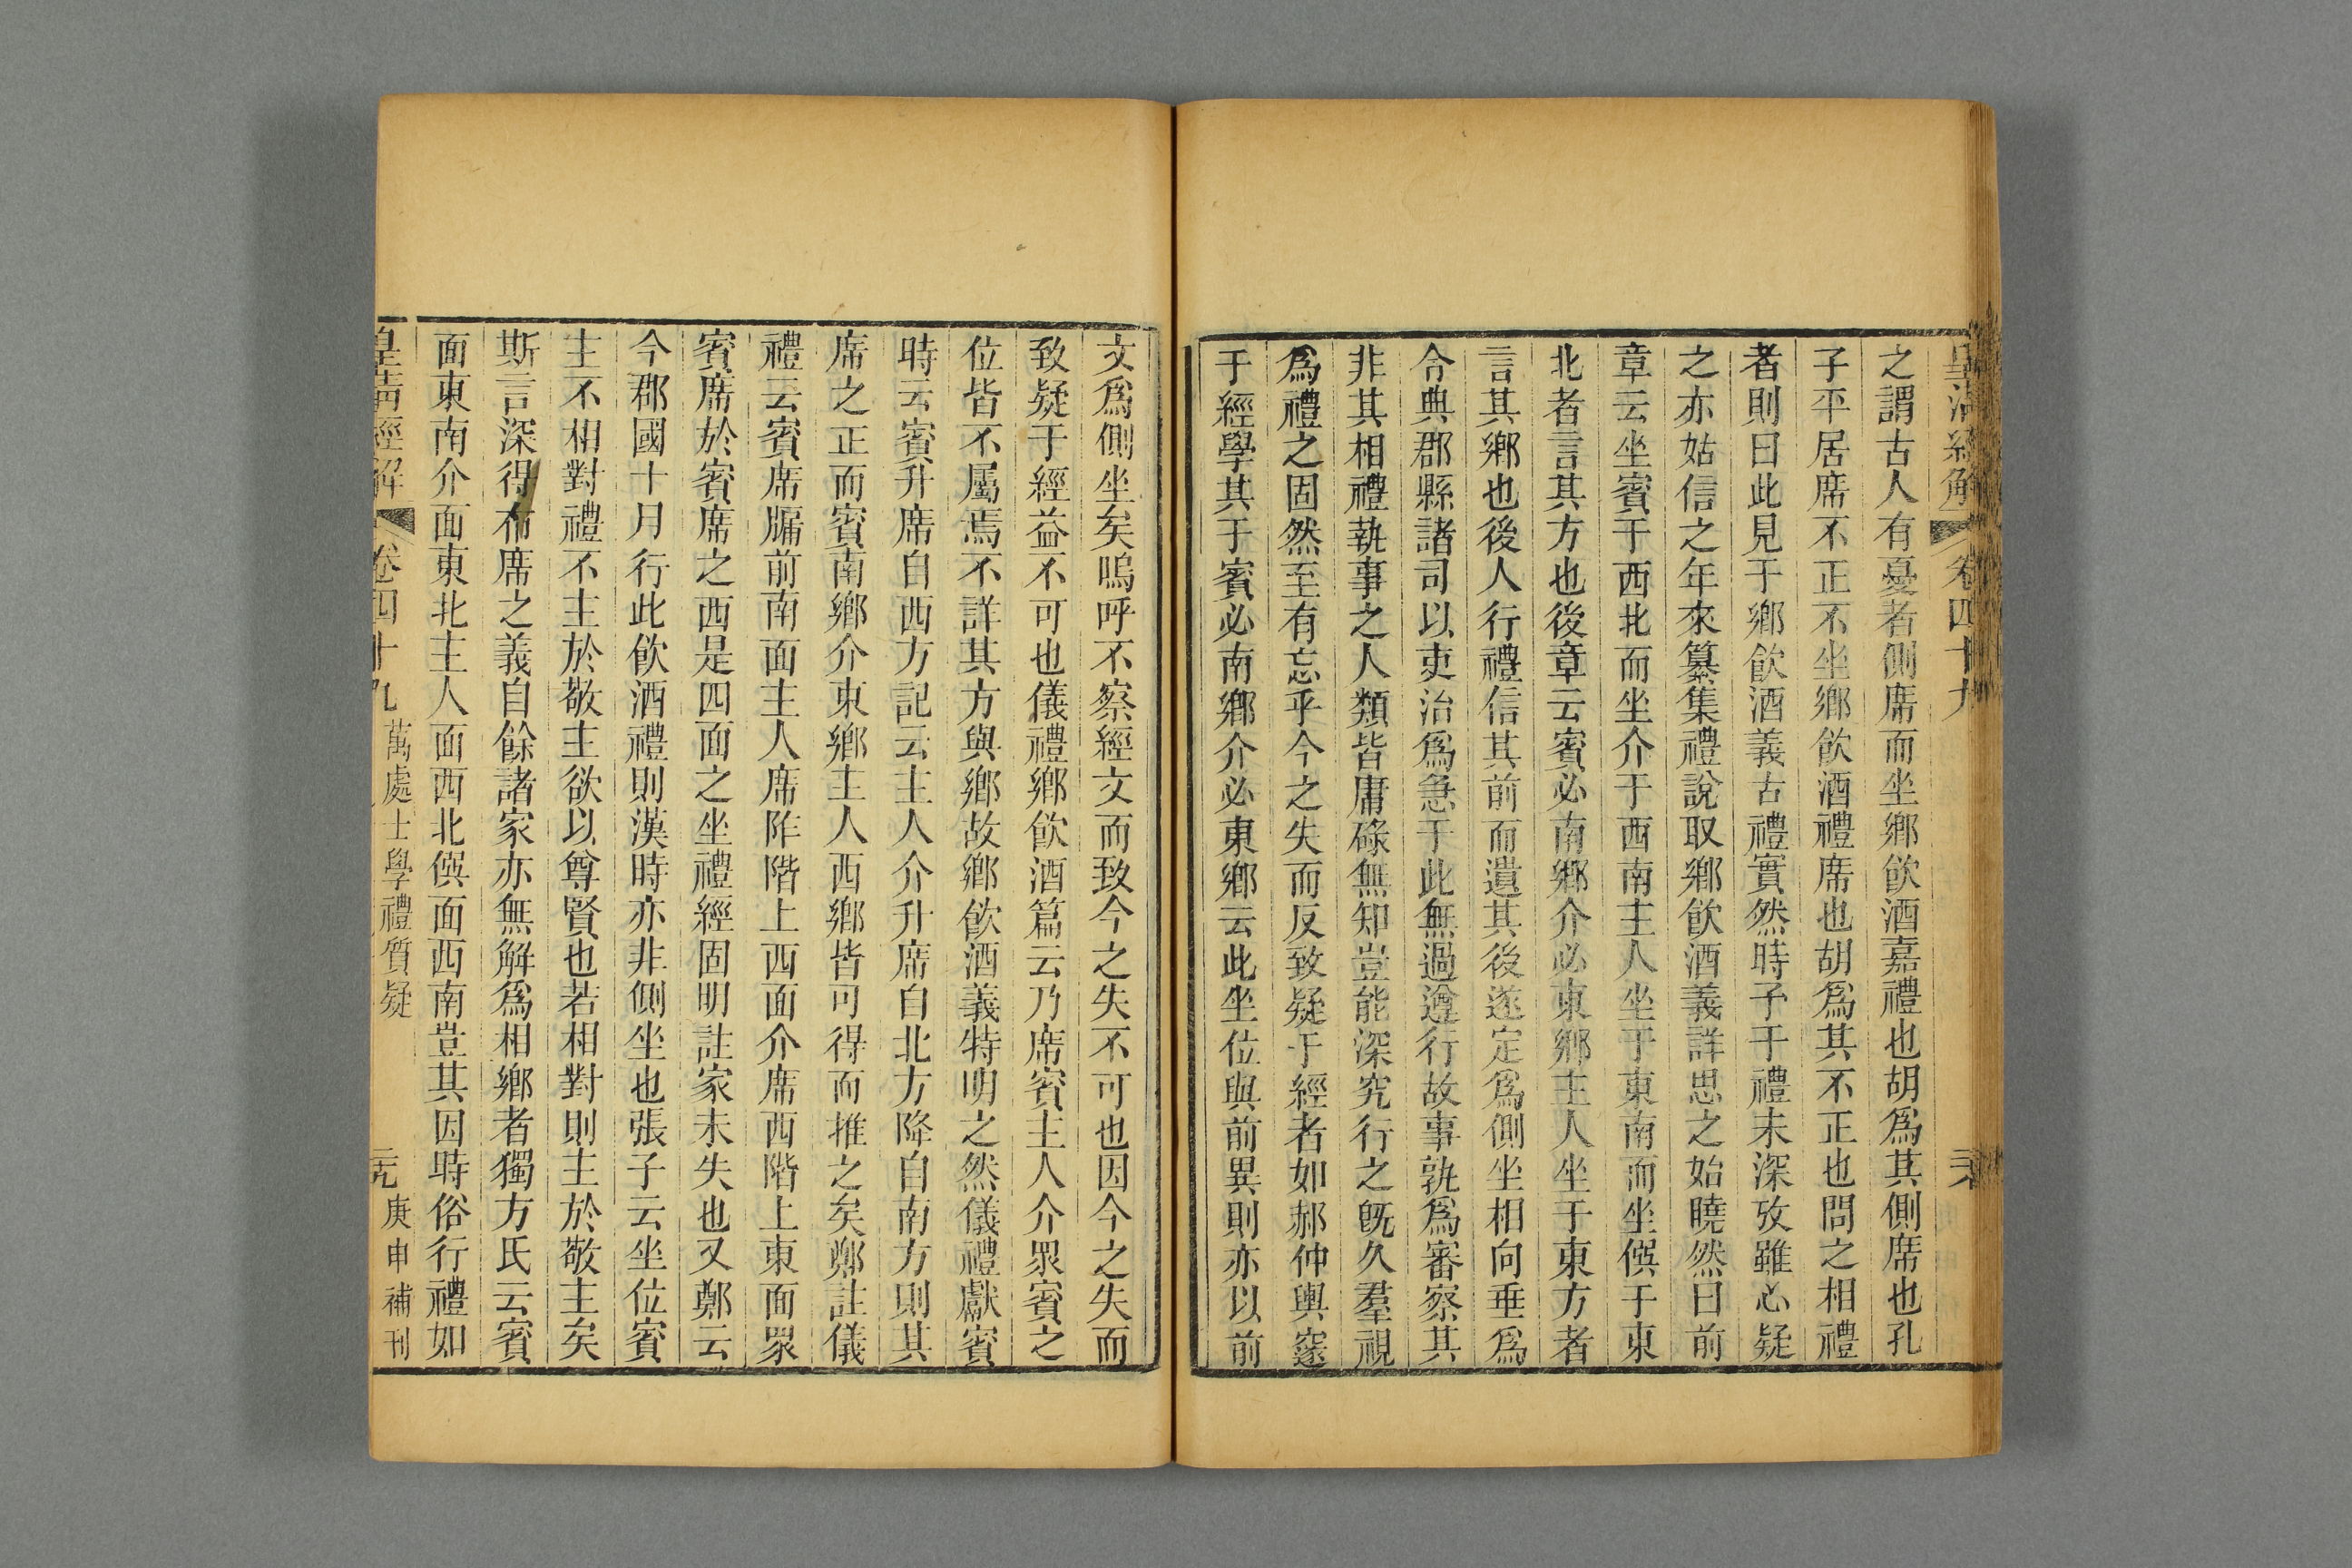 皇清經解 卷四十九 六
之謂古人有憂者側席而坐鄉飲酒嘉禮也胡爲其側席也孔
子平居席不正不坐鄉飲酒禮席也胡爲其不正也問之相禮
者則曰此見于鄉飲酒義古禮實然時予于禮未深攷雖心疑
之亦姑信之年來纂集禮說取鄉飲酒義詳思之始曉然曰前
章云坐賓于西北而坐介于西南主人坐于東南而坐僎于東
北者言其方也後章云賓必南鄉介必東鄉主人坐于東方者
言其鄉也後人行禮信其前而遺其後遂定爲側坐相向垂爲
令典郡縣諸司以吏治爲急于此無過遵行故事孰爲審察其
非其相禮執事之人類皆庸碌無知豈能深究行之旣久羣視
爲禮之固然至有忘乎今之失而反致疑于經者如郝仲輿窾
于經學其于賓必南鄉介必東鄉云此坐位與前異則亦以前
文爲側坐矣嗚呼不察經文而致今之失不可也因今之失而
致疑于經益不可也儀禮鄉飲酒篇云乃席賓主人介眾賓之
位皆不屬焉不詳其方與鄉故鄉飲酒義特明之然儀禮獻賓
時云賓升席自西方記云主人介升席自北方降自南方則其
席之正而賓南鄉介東鄉主人西鄉皆可得而推之矣鄭註儀
禮云賓席牖前南面主人席阼階上西面介席西階上東面眾
賓席於賓席之西是四面之坐禮經固明註家未失也又鄭云
今郡國十月行此飲酒禮則漢時亦非側坐也張子云坐位賓
主不相對禮不主於敬主欲以尊賢也若相對則主於敬主矣
斯言深得布席之義自餘諸家亦無解爲相鄉者獨方氏云賓
面東南介面東北主人面西北僎面西南豈其因時俗行禮如
皇清經解 卷四十九 萬處士學禮質疑 芫 庚申補刊